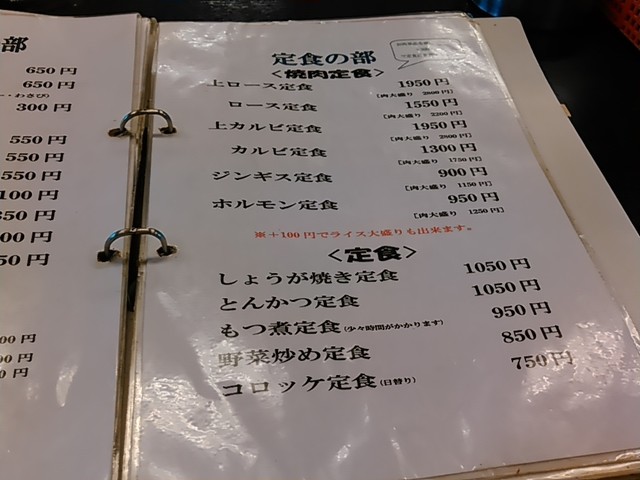 部
650円
650円
・わさび)
300円
550円
550円
550円
100円
350円
00円
50円
00円
00円
0円
定食の部
<焼肉定食>
上ロース定食 1950円
[肉大盛り 2800円]
ロース定食 1550円
[肉大盛り 2200円]
上カルビ定食 1950円
[肉大盛り 2800円]
カルビ定食 1300円
[肉大盛り 1750円]
ジンギス定食 900円
[肉大盛り 1150円]
ホルモン定食 950円
[肉大盛り 1250円]
※+100円でライス大盛りも出来ます。
<定食>
しょうが焼き定食 1050円
とんかつ定食 1050円
もつ煮定食(少々時間がかかります) 950円
野菜炒め定食 850円
コロッケ定食(日替り) 750円